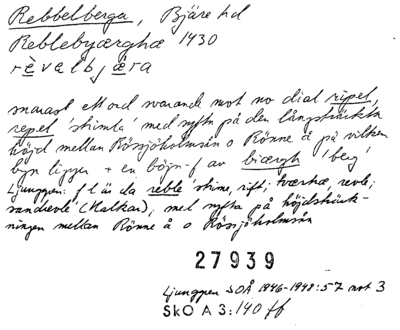 Rebbelberga, Bjäre hd
Reblebyærghæ 1430
rèvalbjæra
snarast ett ord svarande mot no dial ripel,
repel 'strimla' med syftn på den långsträckta
höjd mellan Rössjöholmsån o Rönne å på vilken
byn ligger + en böjn-f av biærgh 'berg'
Ljunggren: f l ää da reble 'strime, rift; tværtræ, revle;
sandrevle' (Kalkar), med syftn på höjdsträck-
ningen mellan Rönne å o Rössjöholmsån
27939
Ljunggren SOÅ 1946-1948:57 not 3
SkO A 3:140 ff